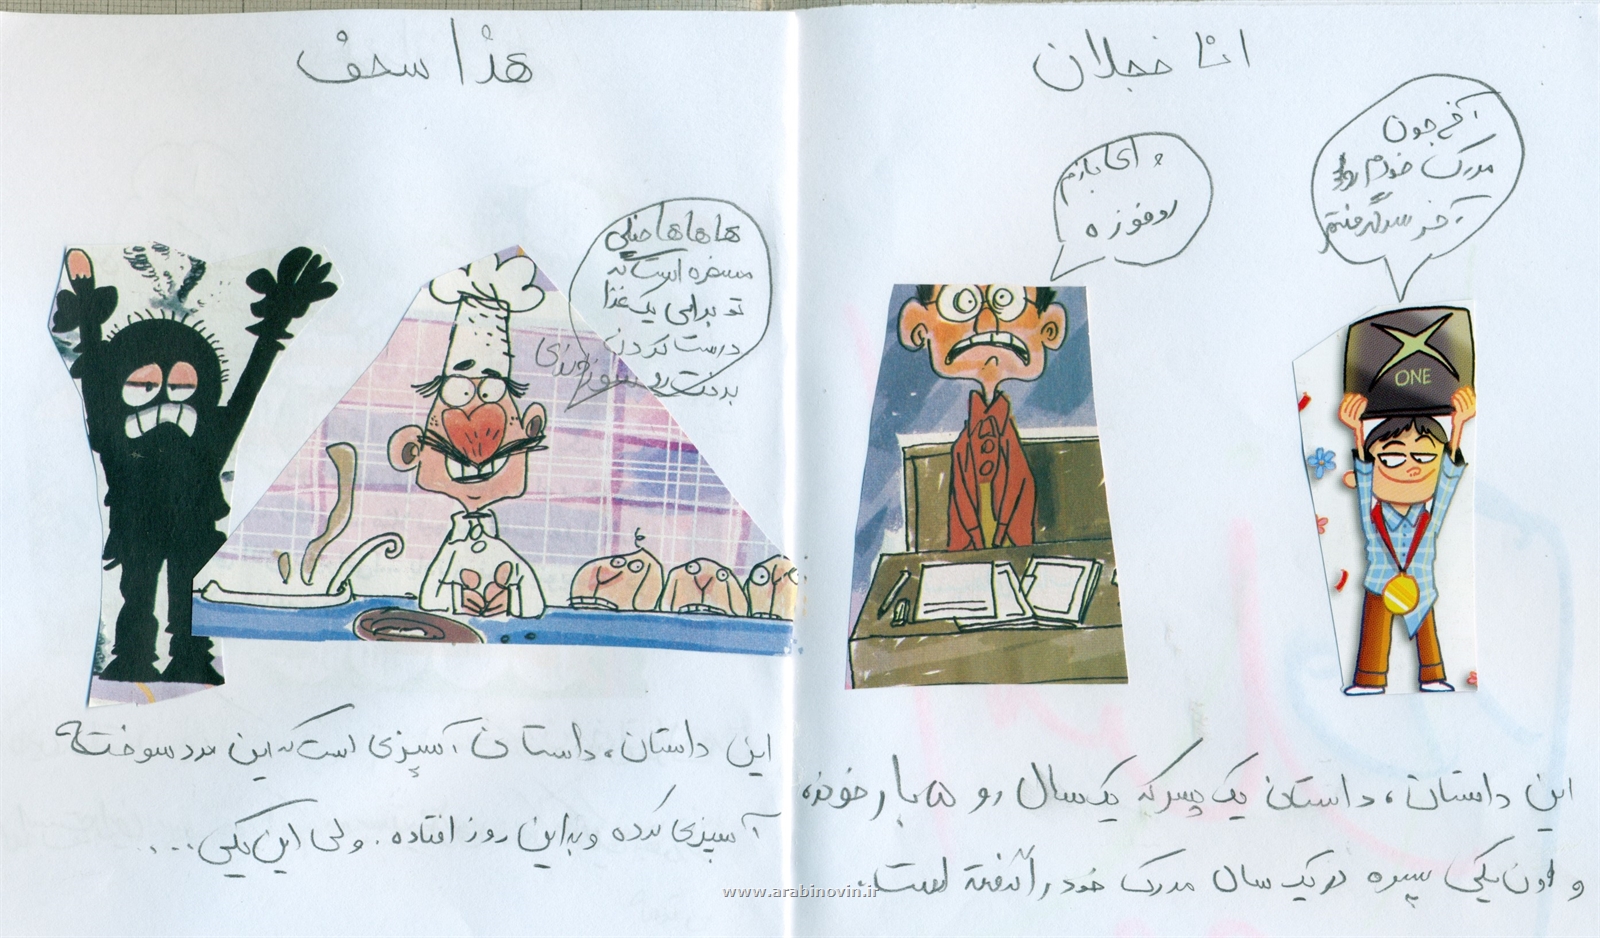 انا خجلان
آخ جون
مدرک خودم رو
آخر سر گرفتم
وای بازم
رفوزه
این داستان، داستان یک پسر که یک سال رو ۵ بار خونده
و اون یکی پسره در یک سال مدرک خود را گرفته است.
هذا سخف
ها ها ها خیلی
مسخره است که
تو برای یک غذا
درست کردن
بدنت رو سوزوندی
ONE
این داستان، داستان آشپزی است که این مرد سوخته
آشپزی کرده و به این روز افتاده. ولی این یکی....
www.arabinovin.ir